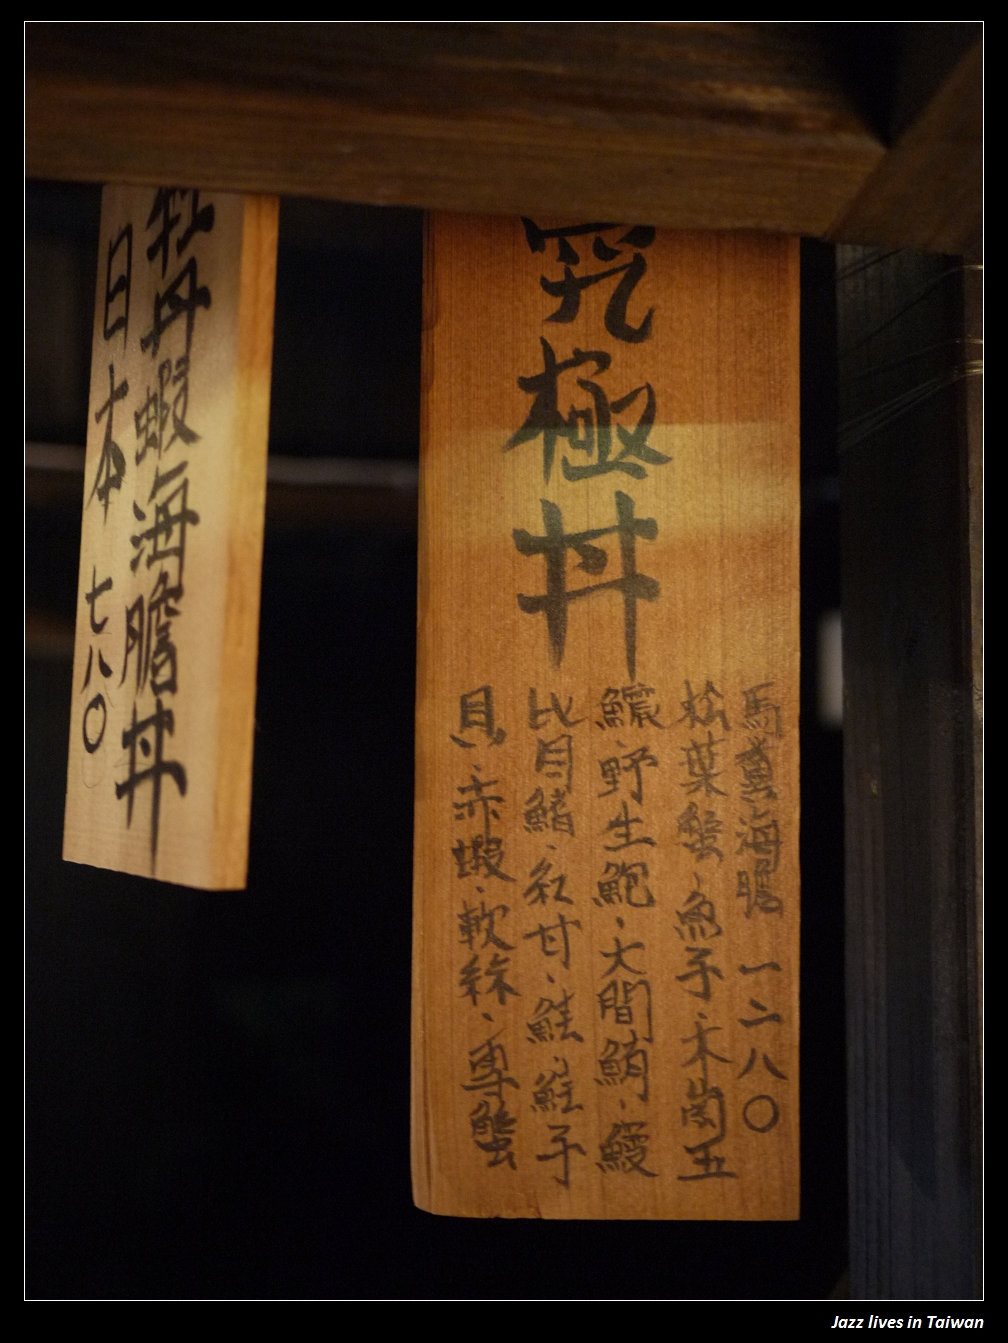 究極丼
馬糞海膽 一二八〇
松葉蟹、魚子、木崗五
野生鮑、大間鮪、鰻
比目鰭、紅甘、鮭、鮭子
貝、赤蝦、軟絲、雪蟹
牡丹蝦海膽丼
日本 七八〇
Jazz lives in Taiwan